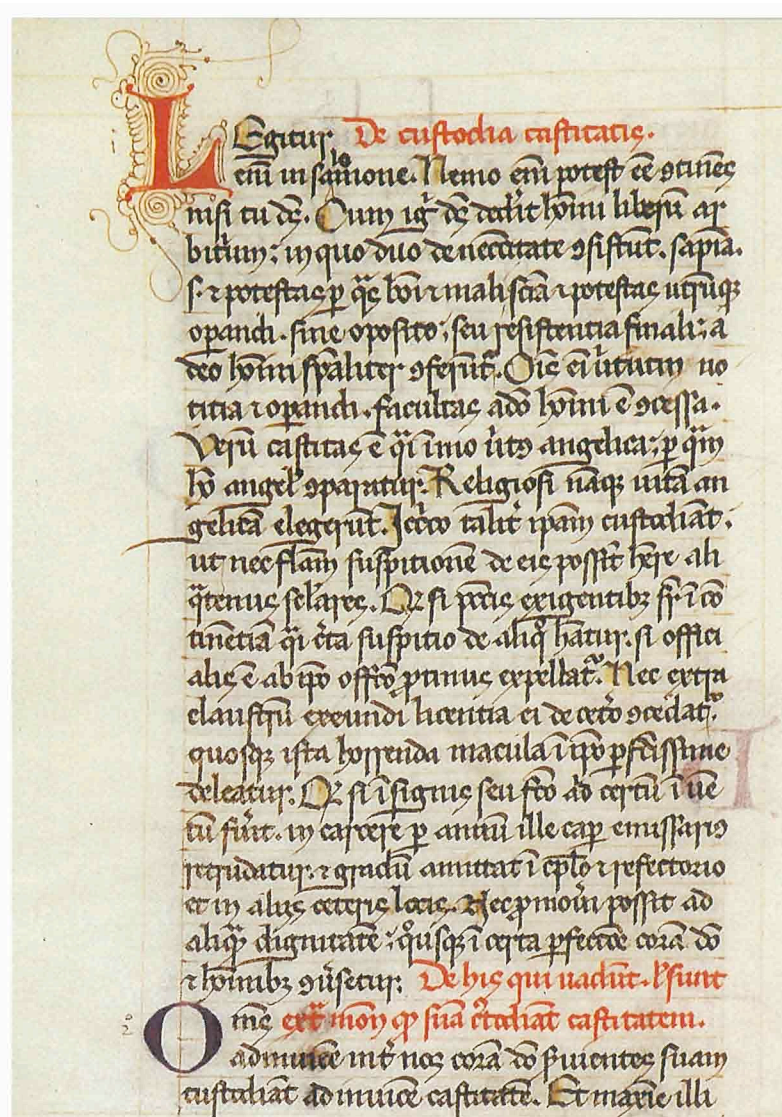 LEgitur De custodia castitatis.
enī in sapīone. Nemo enī potest eē ↄtinēs
nisi tu dꝰ. Cum igͬ dꝰ dedit hoīni liberū ar
bitriū: in quo duo de neccītate ↄsistūt. sapīa.
s. ⁊ potestas ꝑ qͣs boni ⁊ mali sciā ⁊ potestas utrūqꝫ
oꝑandi. sine oposito: seu resistentia finali: a
deo hoīni spāliter ↄferunt̉. Oīs eī uirtutū no
titia ⁊ oꝑandi. facultas a do hoīni ē ↄcessa.
Verū castitas ē qͣi īmo uirtꝰ angelica: ꝑ qͣm
hō angelꝭ ↄparatur. Religiosi nāqꝫ uitā an
gelicā elegerūt. Iccͦo talit̉ ipām custodiāt.
ut nec flām suspitionē de eis possīt hēre ali
qͣtenus sclares. Qꝫ si pctīs exigentibꝫ sup ī cō
tinētiā qͣi c̉ta suspitio de aliqͦ hātur. si offici
alis ē ab ipō officō ꝓtinus expellat̉. Nec extra
claustrū exeundi licentia ei de cet̉o ↄcedat̉.
quosqꝫ ista horrenda macula ī ipō ꝑfctissime
deleatur. Qꝫ si ī signis seu fcō ad certū ī uē
tū fūit. in carcere ꝑ annū ille cap̉ emissariꝰ
retrudatur: ⁊ gradū amittat ī cplō ⁊ refectorio
et in aliis ceteris locis. Nec ꝓmoūi possit ad
aliqͣ dignitatē: qͦusqꝫ ī certa ꝑfectōe corā dō
⁊ hoīnibꝫ ↄūsetur. De his qui uadūt. ł sunt
Omēs extͣ mon̄ qꝫ suā c̉todiāt castitatem.
ad inuicē int̉ nos corā dō s̉uientes suam
custodiāt ad inuicē castitatē. Et maxīe illi